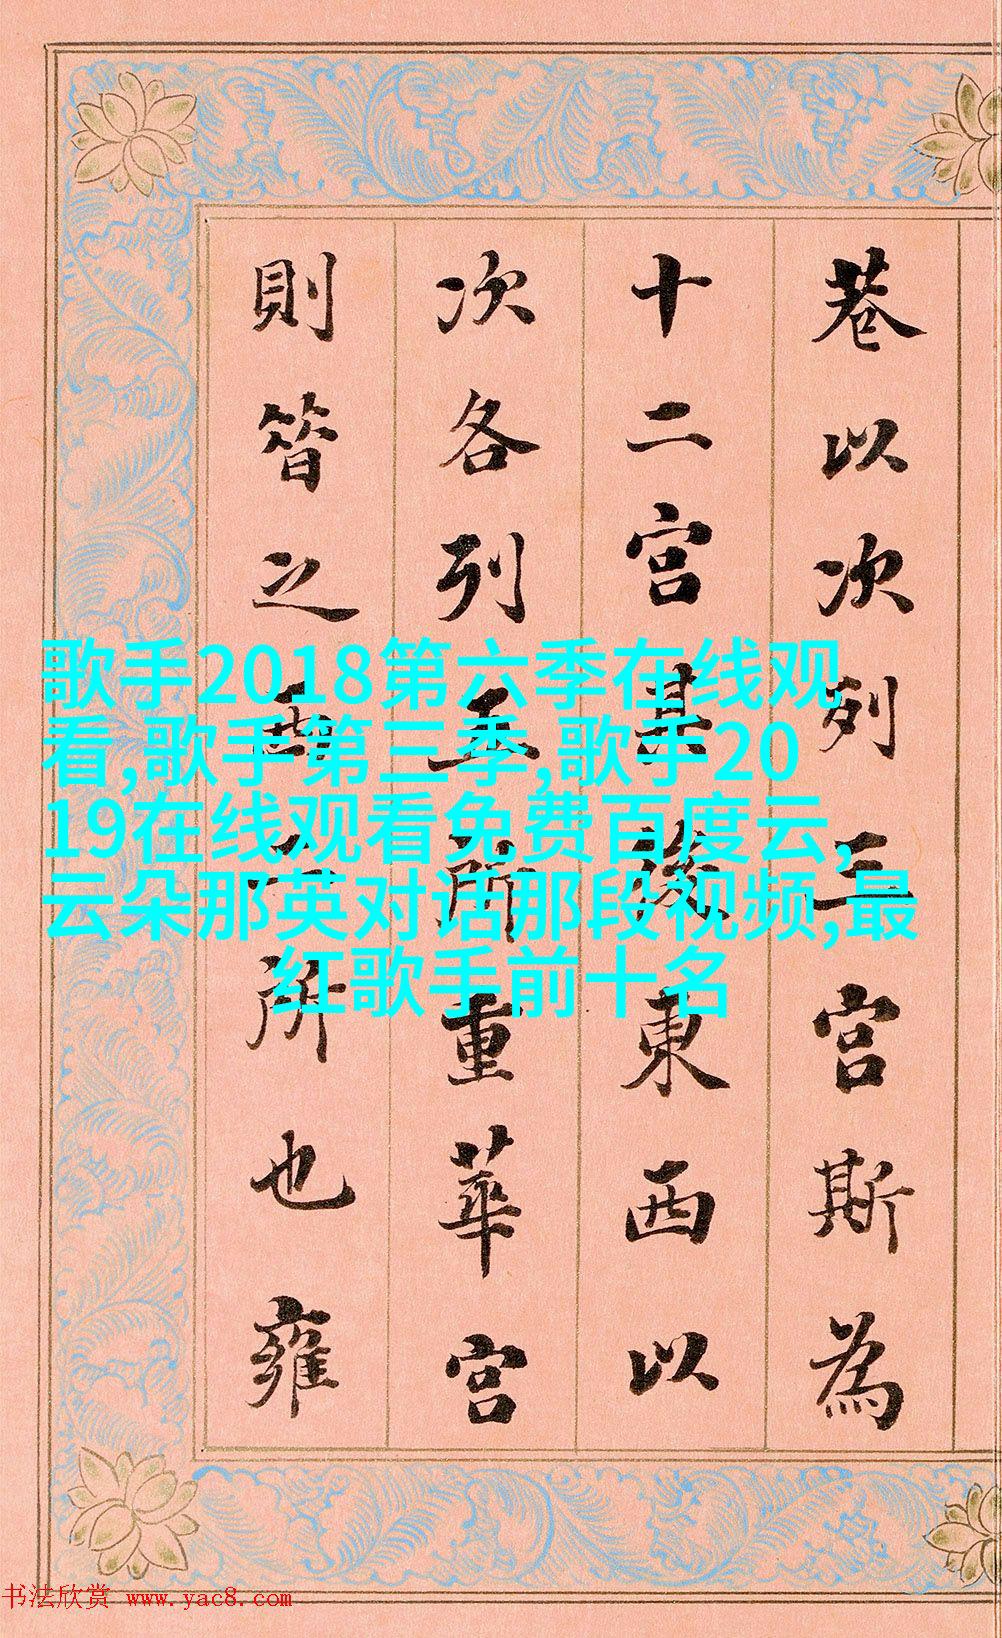 巷以次列三宫斯為
十二宫其後東西以
次各列五所重華宫
則昔之西二所也雍
歌手2018第六季在线观
看,歌手第三季,歌手20
19在线观看免费百度云,
云朵那英对话那段视频,最
红歌手前十名
书法欣赏 www.yac8.com